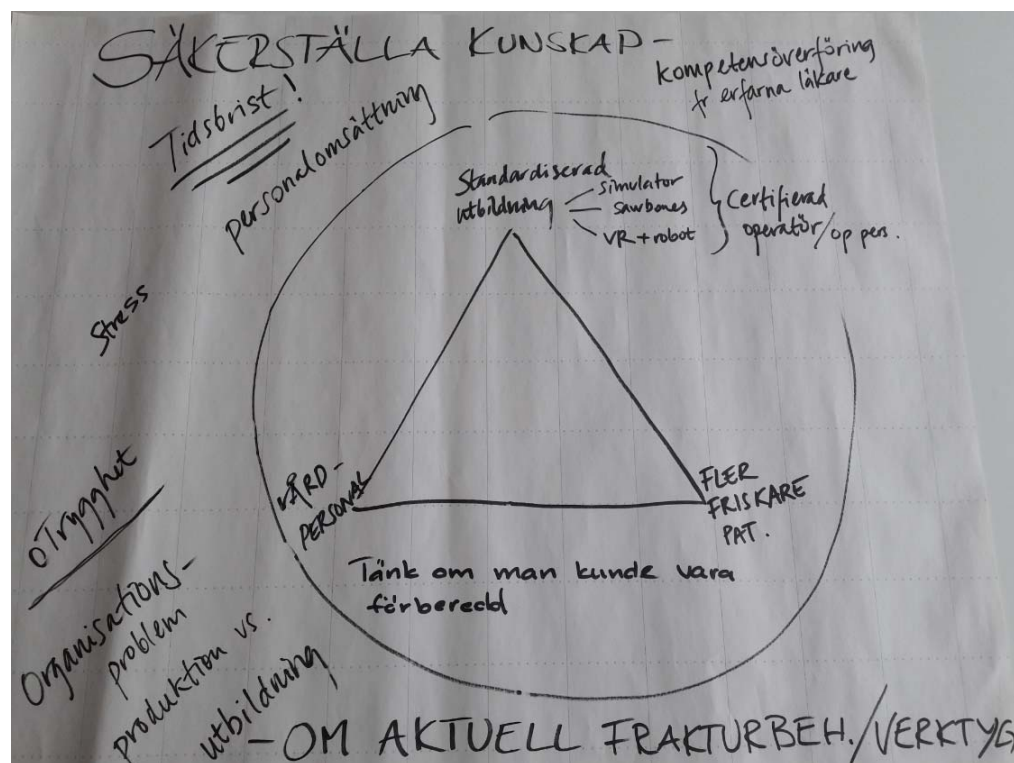 SÄKERSTÄLLA KUNSKAP -
kompetensöverföring
fr erfarna läkare
Tidsbrist!
personalomsättning
Standardiserad
utbildning
simulator
sawbones
VR + robot
Certifierad
operatör/op pers.
Stress
oTrygghet
VÅRD-
PERSONAL
FLER
FRISKARE
PAT.
Tänk om man kunde vara
förberedd
Organisations-
problem
produktion vs.
utbildning
- OM AKTUELL FRAKTURBEH./VERKTYG